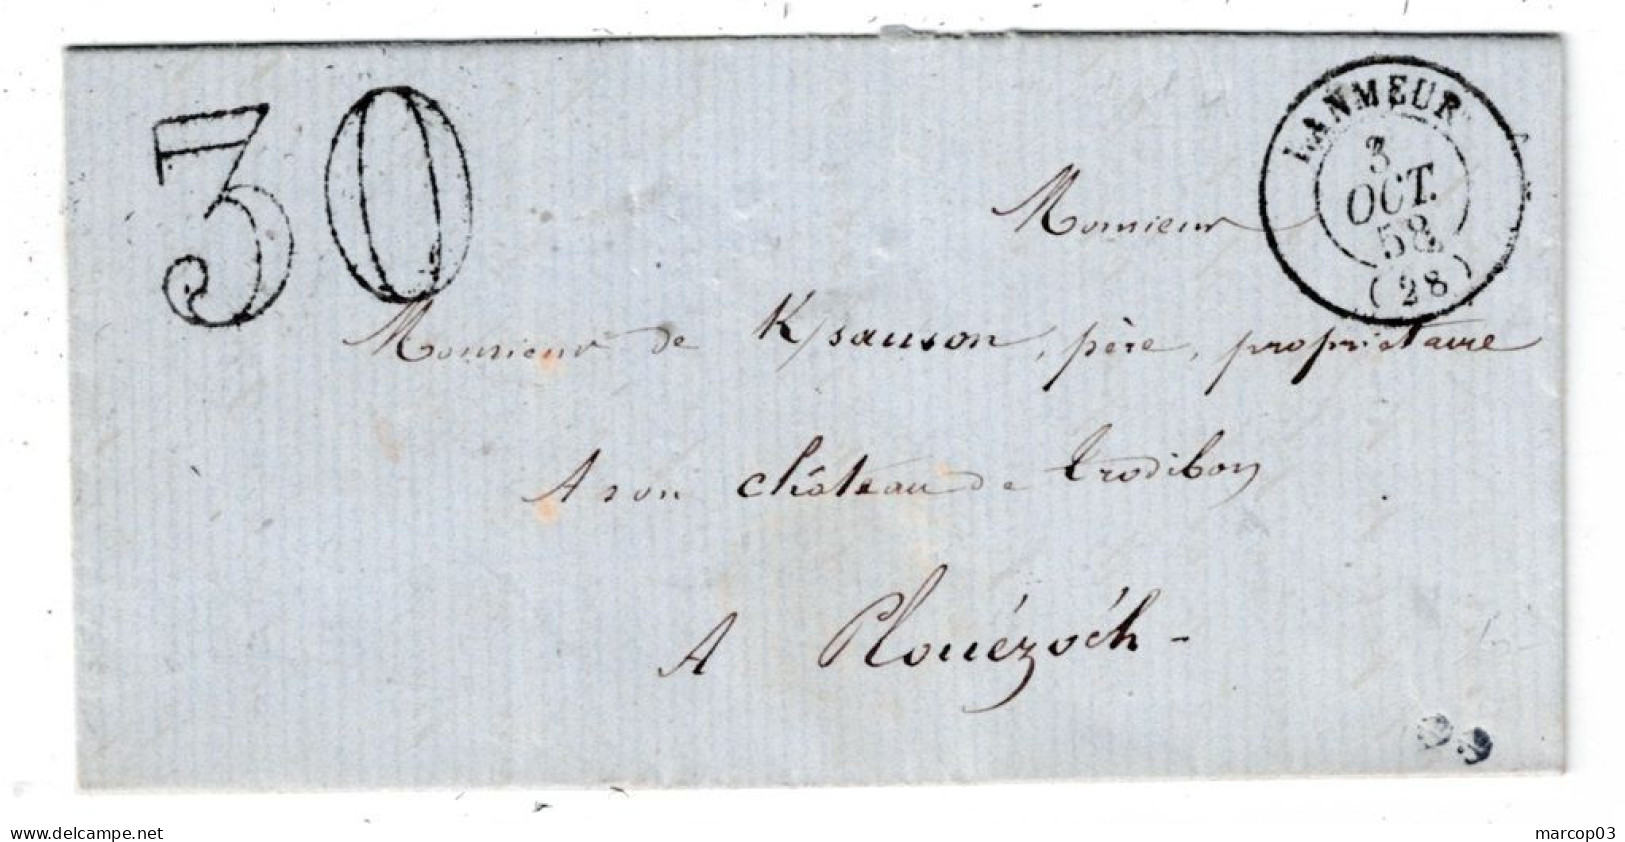 30
LANMEUR
3
OCT.
58
(28)
Monsieur
Monsieur de K/sauson, père, propriétaire
A son château de Trodibon
A Plouézóch -
www.delcampe.net
marcop03